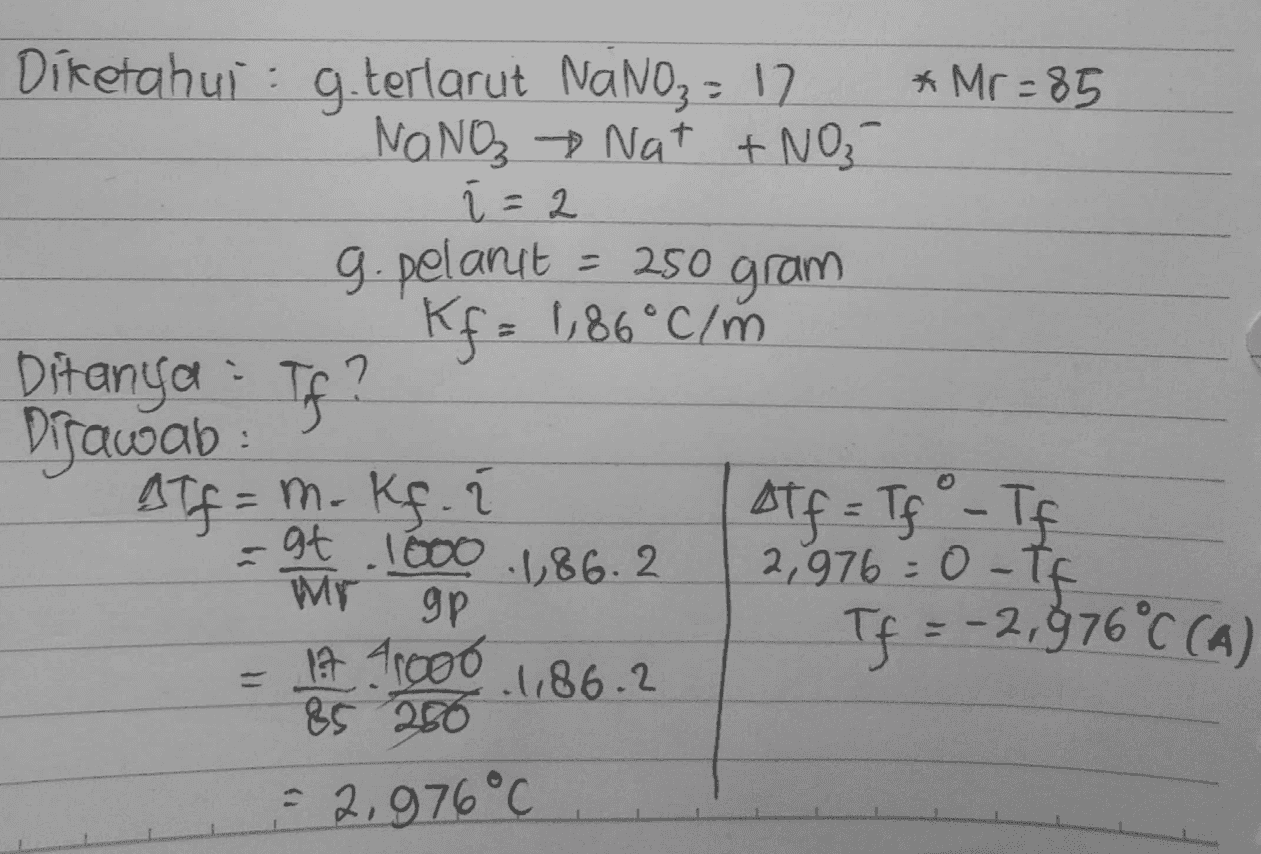 Diketahui : g.terlarut NaNO₃ = 17 * Mr = 85
NaNO₃ → Na⁺ + NO₃⁻
i = 2
g. pelarut = 250 gram
Kf = 1,86°C/m
Ditanya : Tf?
Dijawab :
ΔTf = m. Kf. i
= gt/Mr . 1000/gp . 1,86. 2
= 17/85 . 4 1000/250 . 1,86.2
= 2,976°C
ΔTf = Tf° - Tf
2,976 = 0 - Tf
Tf = -2,976°C (A)